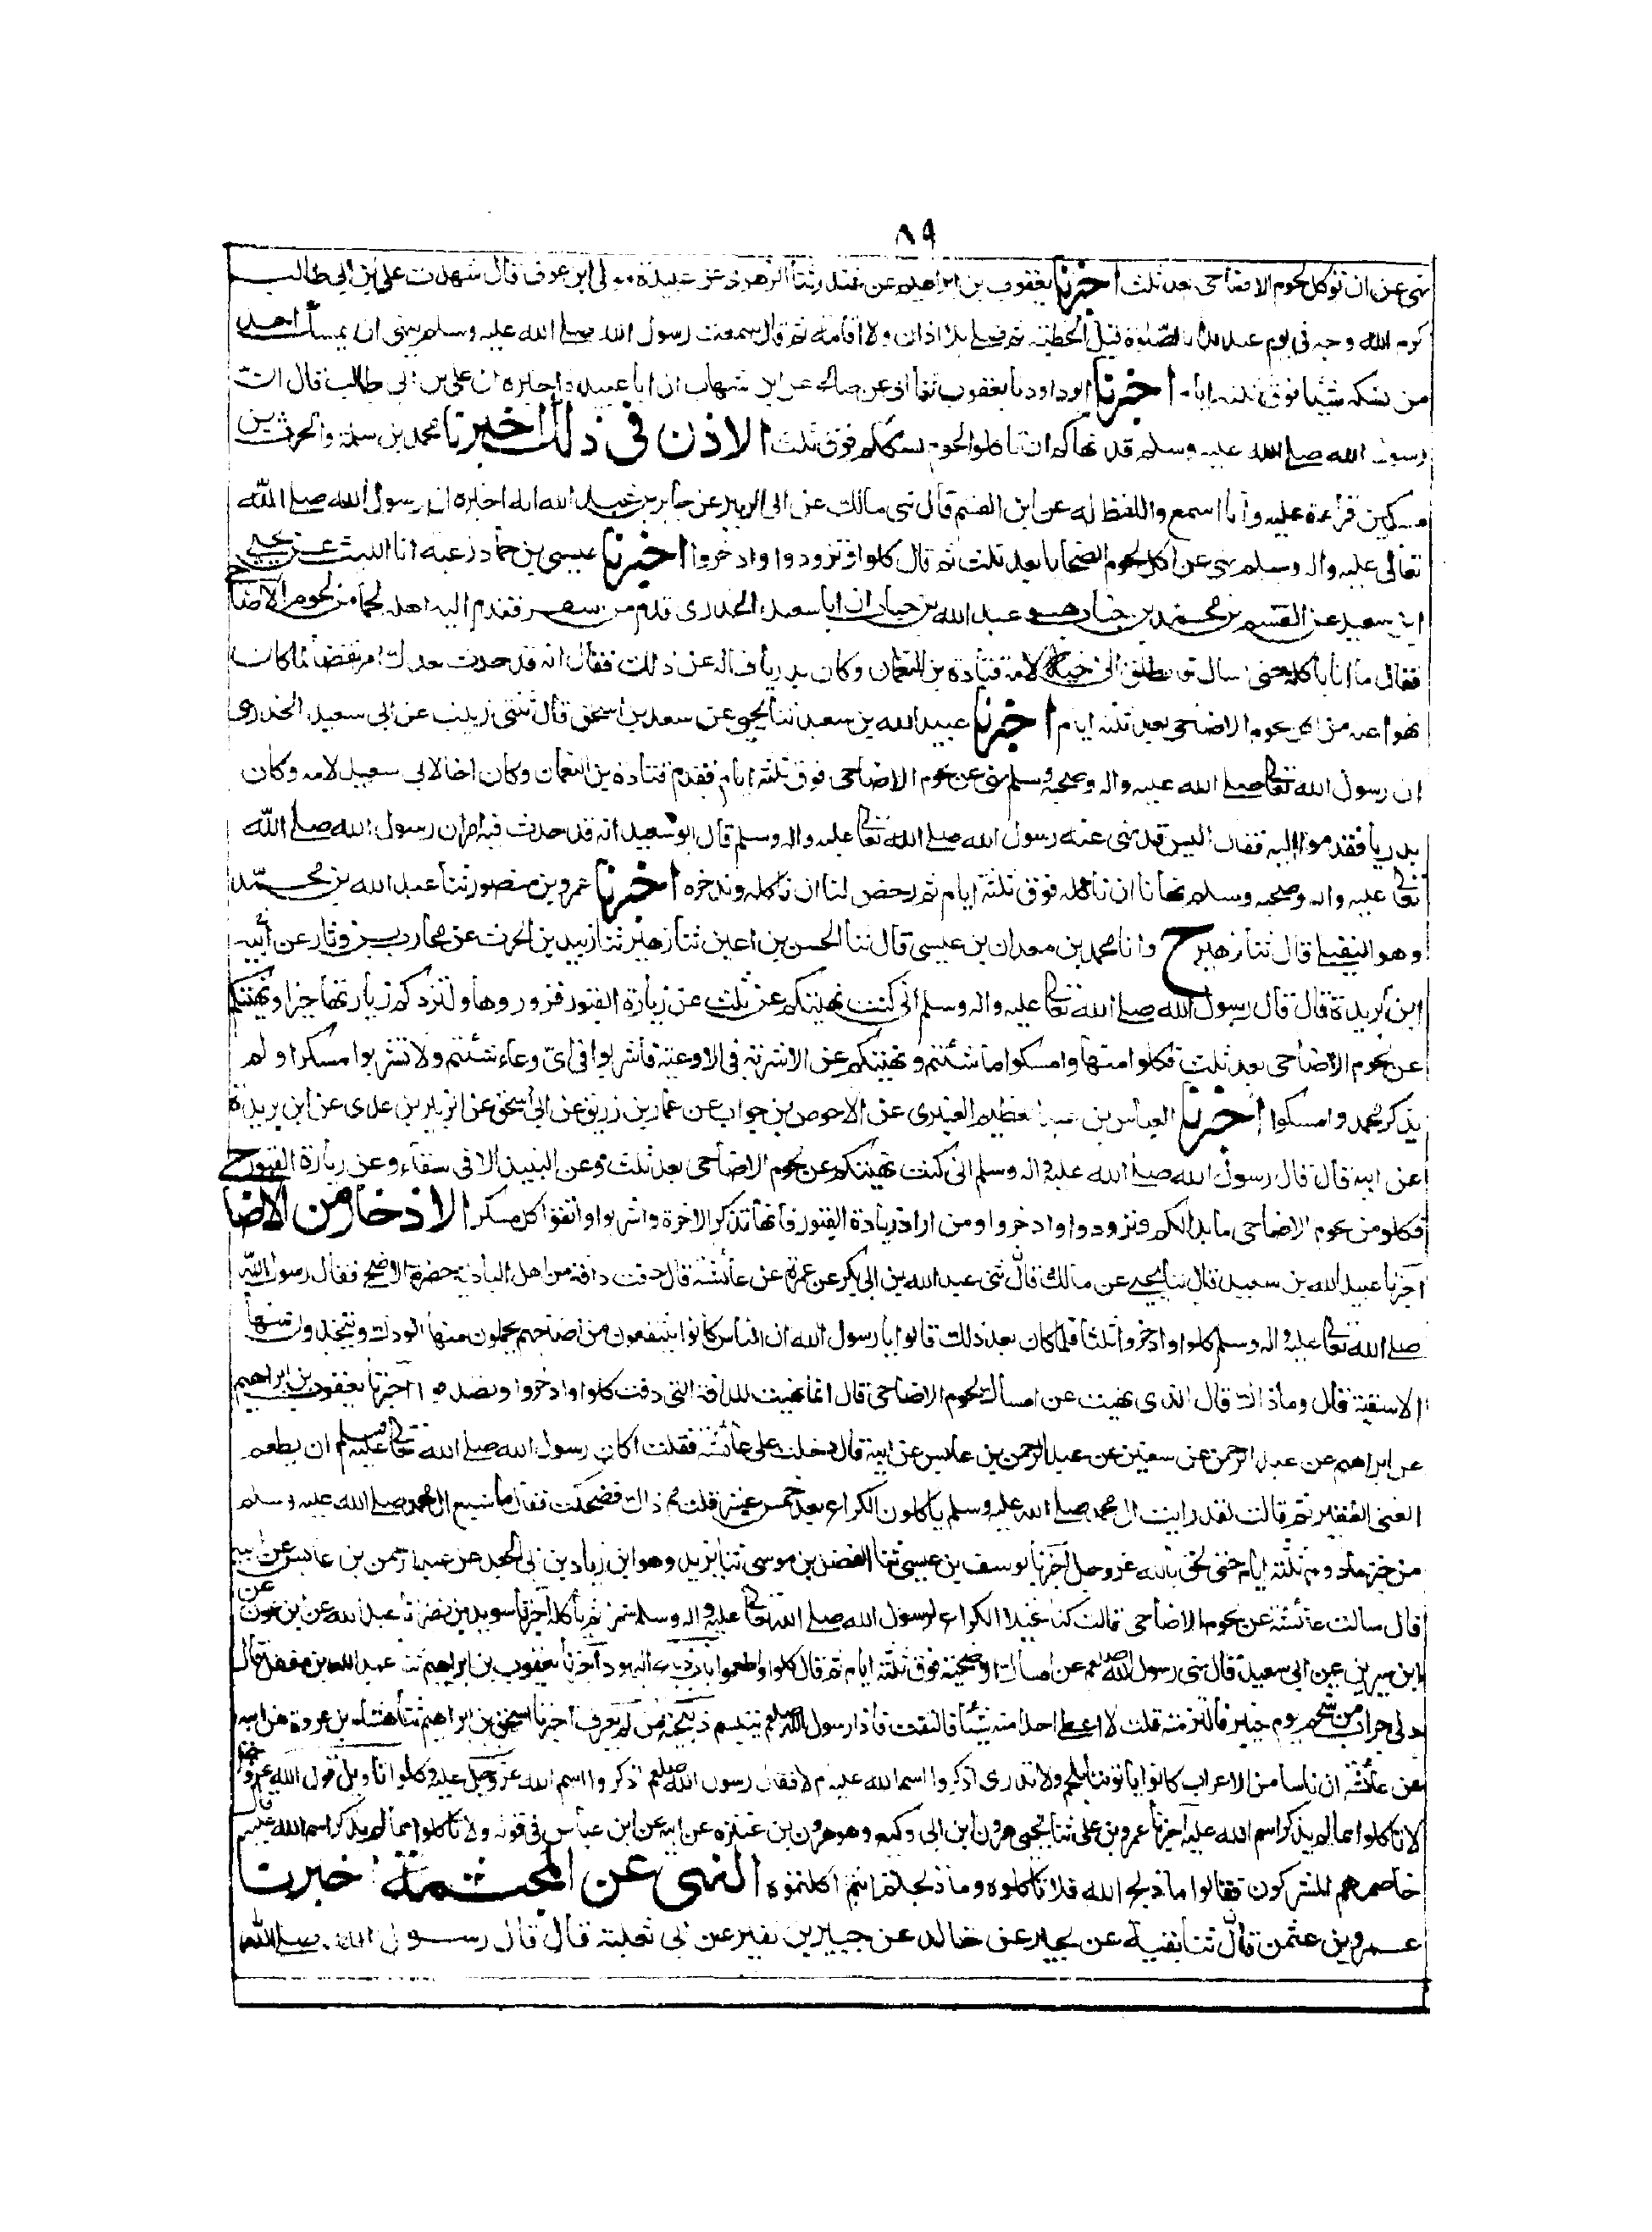 ٨٩
نهى عن ان توكل لحوم الاضاحى بعد ثلث اخبرنا يعقوب بن ابراهيم عن غندر ثنا الزهرى عن عبيدة مولى ابن عوف قال شهدت على بن ابى طالب
كرم الله وجهه فى يوم عيد بدأ بالصلوة قبل الخطبة ثم صلى بلا اذان ولا اقامة ثم قال سمعت رسول الله صلى الله عليه وسلم ينهى ان يمسك احد
من نسكه شيئا فوق ثلثة ايام اخبرنا ابو داود نا يعقوب ثنا ابى عن صالح عن ابن شهاب ان ابا عبيد اخبره ان على بن ابى طالب قال ان
رسول الله صلى الله عليه وسلم قد نهاكم ان تاكلوا لحوم نسككم فوق ثلث الاذن فى ذلك اخبرنا محمد بن سلمة والحرث بن
مسكين قراءة عليه وأنا اسمع واللفظ له عن ابن القسم قال ثنى مالك عن ابى الزبير عن جابر بن عبد الله انه اخبره ان رسول الله صلى الله
تعالى عليه واله وسلم نهى عن اكل لحوم الضحايا بعد ثلث ثم قال كلوا وتزودوا وادخروا اخبرنا عيسى بن حماد زغبة انا الليث عن يحيى
ابن سعيد عن القسم بن محمد بن خباب هو عبد الله بن خباب ان ابا سعيد الخدرى قدم من سفر فقدم اليه اهله لحما من لحوم الاضاحى
فقال ما انا باكله حتى اسال فانطلق الى اخيه لامه قتادة بن النعمان وكان بدريا فساله عن ذلك فقال انه قد حدث بعدك امر نقضا لما كان
نهوا عنه من اكل لحوم الاضحى بعد ثلثة ايام اخبرنا عبيد الله بن سعيد ثنا يحيى عن سعد بن اسحق قال ثنتنى زينب عن ابى سعيد الخدرى
ان رسول الله تعالى صلى الله عليه واله وصحبه وسلم نهى عن لحوم الاضاحى فوق ثلثة ايام فقدم قتادة بن النعمان وكان اخا لابى سعيد لامه وكان
بدريا فقدموا اليه فقال اليس قد نهى عنه رسول الله صلى الله تعالى عليه واله وسلم قال ابو سعيد انه قد حدث فيه امر ان رسول الله صلى الله
تعالى عليه واله وصحبه وسلم نهانا ان ناكله فوق ثلثة ايام ثم رخص لنا ان ناكله وندخره اخبرنا عمرو بن منصور ثنا عبد الله بن محمد
وهو النفيلى قال ثنا زهير ح وانا محمد بن معدان بن عيسى قال ثنا الحسن بن اعين ثنا زهير ثنا زبيد بن الحرث عن محارب بن دثار عن أبيه
ابن بريدة قال قال رسول الله صلى الله تعالى عليه واله وسلم انى كنت نهيتكم عن ثلث عن زيارة القبور فزوروها ولتزدكم زيارتها خيرا ونهيتكم
عن لحوم الاضاحى بعد ثلث فكلوا منها وامسكوا ما شئتم ونهيتكم عن الاشربة فى الاوعية فاشربوا فى اى وعاء شئتم ولا تشربوا مسكرا ولم
يذكر محمد وامسكوا اخبرنا العباس بن عبد العظيم العنبرى عن الاحوص بن جواب عن عمار بن زريق عن ابى اسحق عن الزبير بن عدى عن ابن بريدة
عن ابيه قال قال رسول الله صلى الله عليه واله وسلم انى كنت نهيتكم عن لحوم الاضاحى بعد ثلث وعن النبيذ الا فى سقاء وعن زيارة القبور
فكلو من لحوم الاضاحى ما بدا لكم وتزودوا وادخروا ومن اراد زيارة القبور فانها تذكر الاخرة واشربوا واتقوا كل مسكر الادخار من الاضاحى
اخبرنا عبيد الله بن سعيد قال ثنا يحيى عن مالك قال ثنى عبد الله بن ابى بكر عن عمرة عن عائشة قال دفت دافة من اهل البادية حضرة الاضحى فقال رسول الله
صلى الله تعالى عليه واله وسلم كلوا وادخروا ثلثا فلما كان بعد ذلك قالوا يا رسول الله ان الناس كانوا ينتفعون من اضاحيهم يجملون منها الودك ويتخذون منها
الاسقية قال وما ذاك قال الذى نهيت عن امساك لحوم الاضاحى قال انما نهيت للدافة التى دفت كلوا وادخروا وتصدقوا اخبرنا يعقوب بن ابراهيم
عن ابراهيم عن عبد الرحمن عن سفين عن عبد الرحمن بن عابس عن ابيه قال دخلت على عائشة فقلت اكان رسول الله صلى الله تعالى عليه وسلم ان يطعم
الغنى الفقير ثم قالت لقد رايت ال محمد صلى الله عليه وسلم ياكلون الكراع بعد خمس عشرة قلت مم ذاك فضحكت فقال ما شبع ال محمد صلى الله عليه وسلم
من خبز مادوم ثلثة ايام حتى لحق بالله عز وجل اخبرنا يوسف بن عيسى ثنا الفضل بن موسى ثنا يزيد وهو ابن زياد بن ابى الجعد عن عبد الرحمن بن عابس عن ابيه
قال سالت عائشة عن لحوم الاضاحى قالت كنا نخبا الكراع لرسول الله صلى الله تعالى عليه واله وسلم شهرا ثم ياكله اخبرنا سويد بن نصر نا عبد الله عن ابن عون عن
ابن سيرين عن ابى سعيد قال نهى رسول الله صلعم عن امساك الاضحية فوق ثلثة ايام ثم قال كلوا واطعموا باب ذبائح اليهود اخبرنا يعقوب بن ابراهيم ثنا عبد الله بن مغفل قال
دلى جراب من شحم يوم خيبر فالتزمته قلت لا اعطى احدا منه شيئا فالتفت فاذا رسول الله صلعم يتبسم ذبيحة من لم يعرف اخبرنا اسحق بن ابراهيم ثنا هشام بن عروة عن ابيه
عن عائشة ان ناسا من الاعراب كانوا ياتوننا بلحم ولا ندرى اذكروا اسم الله عليه ام لا فقال رسول الله صلعم اذكروا اسم الله عز وجل عليه وكلوا تاويل قول الله عز وجل
لا تاكلوا مما لم يذكر اسم الله عليه اخبرنا عمرو بن على ثنا يحيى هرون ابن ابى وكيع وهو هرون بن عنترة عن ابيه عن ابن عباس فى قوله ولا تاكلوا مما لم يذكر اسم الله عليه قال
خاصمهم المشركون فقالوا ما ذبح الله فلا تاكلوه وما ذبحتم انتم اكلتموه النهى عن المجثمة اخبرنا
عمرو بن عثمن قال ثنا بقية عن بحير عن خالد عن جبير بن نفير عن ابى ثعلبة قال قال رسول الله صلى الله